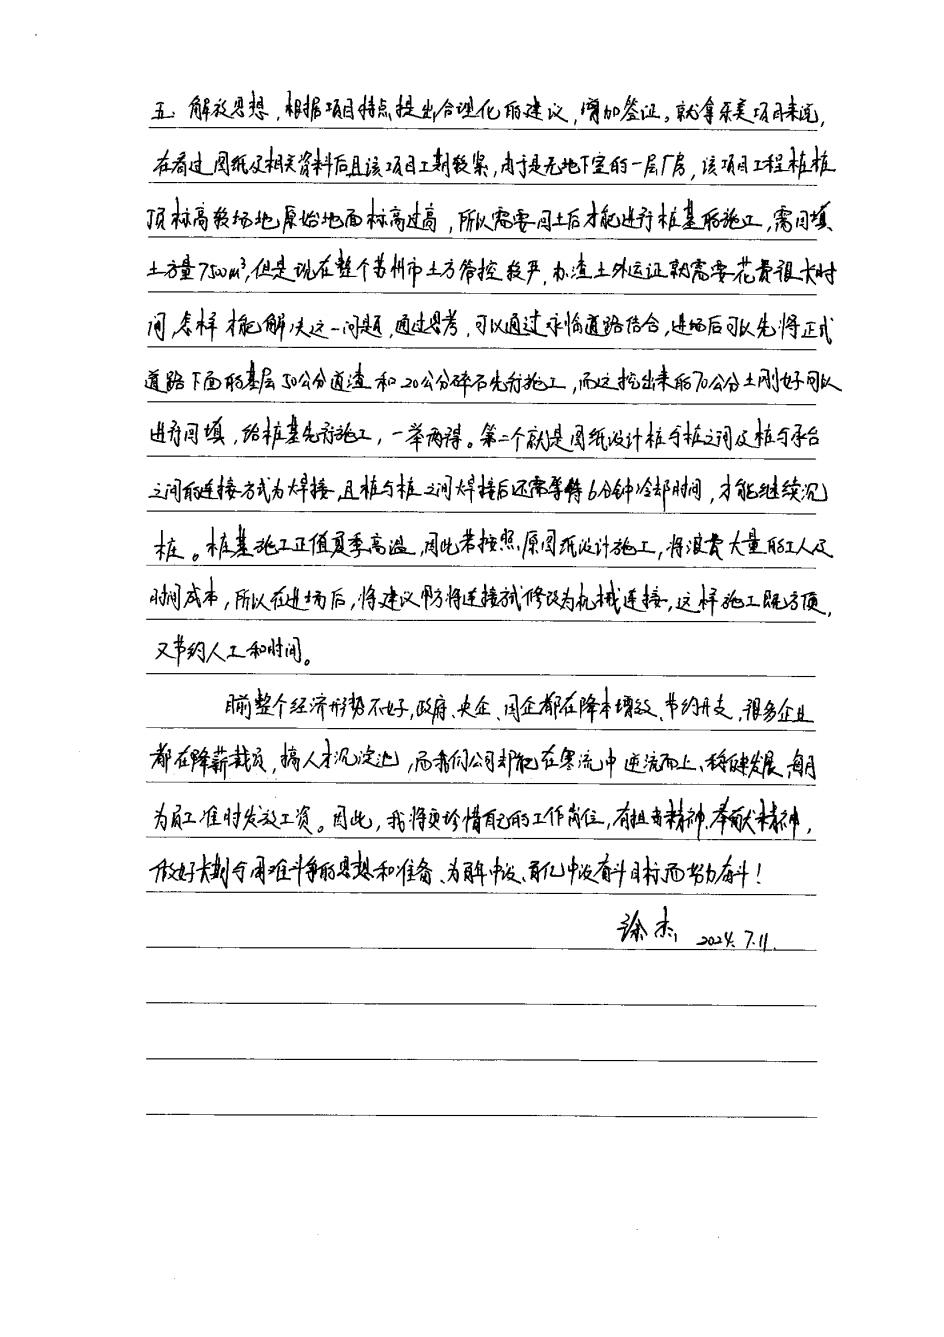 五、解放思想，根据项目特点提出合理化的建议，增加签证。就拿乐美项目来说，
在看过图纸及相关资料后且该项目工期较紧，由于是无地下室的一层厂房，该项目工程桩桩
顶标高较场地原始地面标高过高，所以需要回土后才能进行桩基的施工，需回填
土方量7500m³，但是现在整个苏州市土方管控较严，办渣土外运证就需要花费很长时
间，怎样才能解决这一问题，通过思考，可以通过永临道路结合，进场后可以先将正式
道路下面的基层50公分道渣和20公分碎石先行施工，而这挖出来的70公分土刚好可以
进行回填，给桩基先行施工，一举两得。第二个就是图纸设计桩与桩之间及桩与承台
之间的连接方式为焊接，且桩与桩之间焊接后还需等待6分钟冷却时间，才能继续沉
桩。桩基施工正值夏季高温，因此若按照原图纸设计施工，将浪费大量的工人及
时间成本，所以在进场后，将建议甲方将连接方式修改为机械连接，这样施工既方便，
又节约人工和时间。
目前整个经济形势不好，政府、央企、国企都在降本增效、节约开支，很多企业
都在降薪裁员，搞人才沉淀池，而我们公司却能在寒流中逆流而上、稳健发展，每月
为员工准时发放工资。因此，我将更珍惜自己的工作岗位，有担当精神、奉献精神，
做好长期与困难斗争的思想和准备、为百年中设、百亿中设奋斗目标而努力奋斗！
徐杰 2024.7.11.